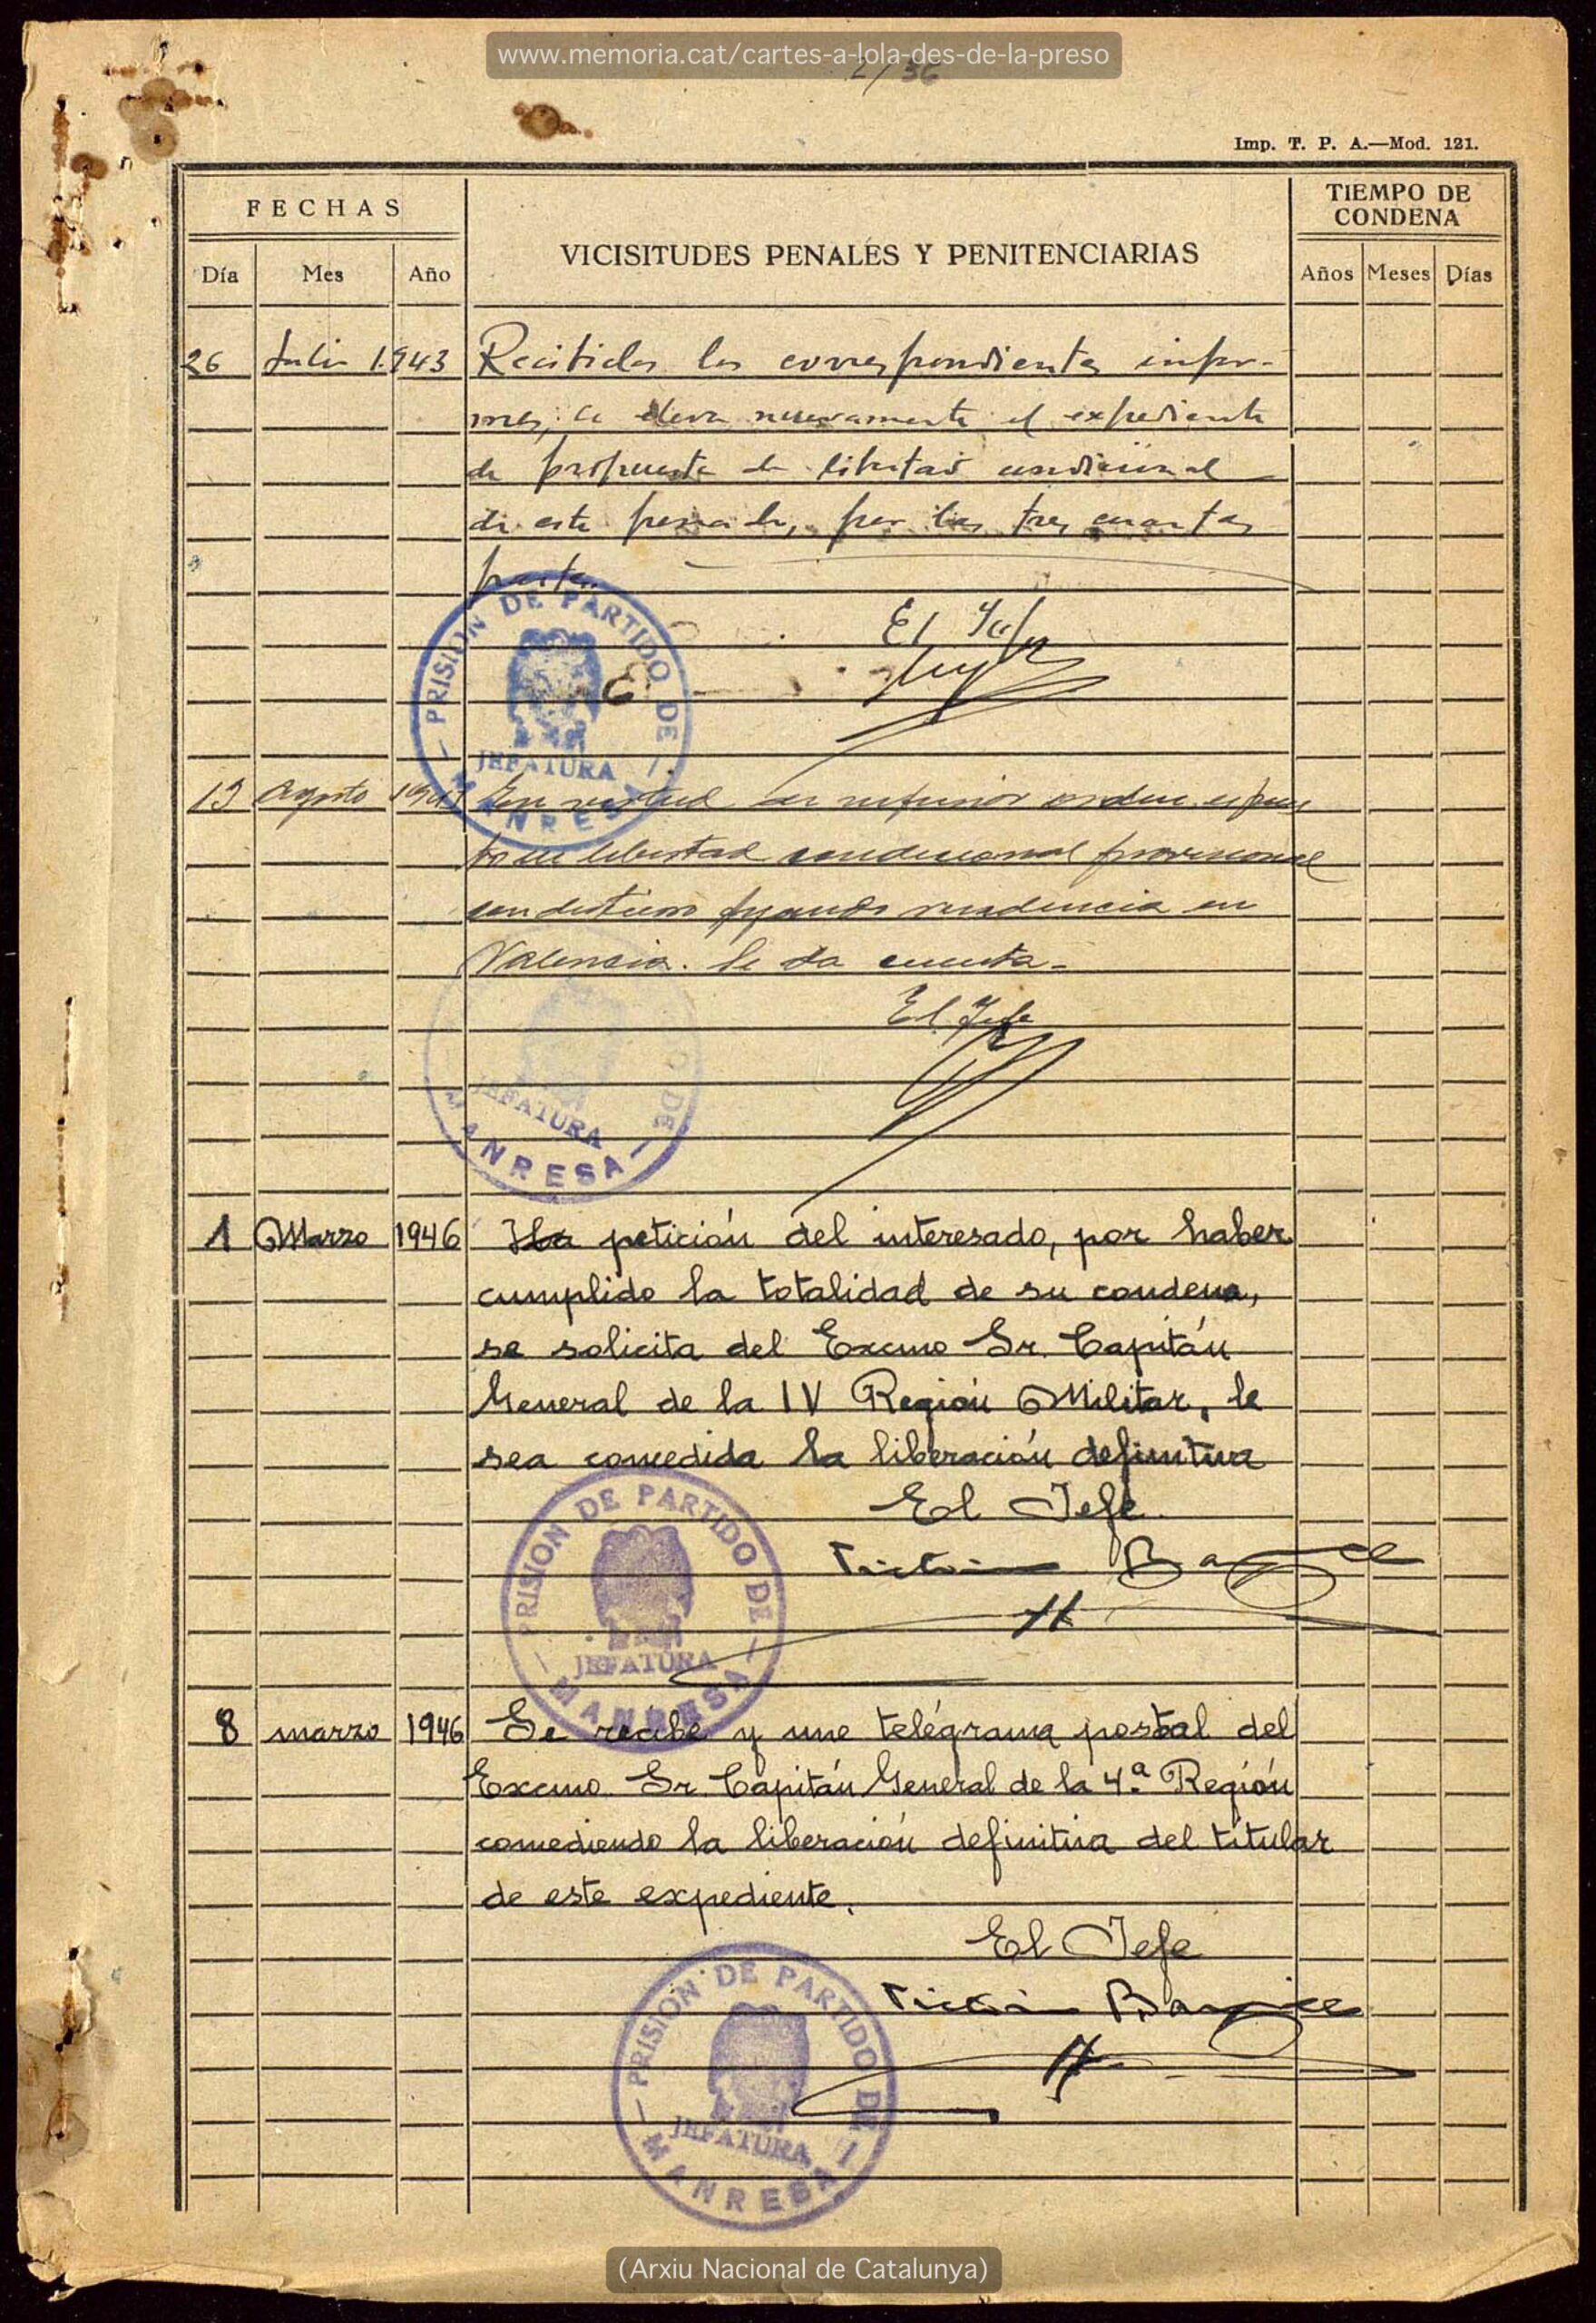 www.memoria.cat/cartes-a-lola-des-de-la-preso
2/36
Imp. T. P. A.—Mod. 121.
FECHAS
VICISITUDES PENALES Y PENITENCIARIAS
TIEMPO DE
CONDENA
Día Mes Año
Años Meses Días
26 Julio 1.943 Recibidos los correspondientes infor-
mes, se eleva nuevamente el expediente
de propuesta de libertad condicional
de este penado, por las tres cuartas
partes.
El Jefe
PRISION DE PARTIDO DE
JEFATURA
MANRESA
13 Agosto 1943 En virtud de superior orden es pues
to en libertad condicional provisional
con destierro fijando residencia en
Valencia. Se da cuenta-
El Jefe
JEFATURA
MANRESA
1 Marzo 1946 A petición del interesado, por haber
cumplido la totalidad de su condena,
se solicita del Excmo Sr. Capitán
General de la IV Región Militar, le
sea concedida la liberación definitiva
El Jefe.
PRISION DE PARTIDO DE
JEFATURA
MANRESA
8 marzo 1946 Se recibe y une telégrama postal del
Excmo. Sr. Capitán General de la 4.ª Región
concediendo la liberación definitiva del titular
de este expediente.
El Jefe
PRISION DE PARTIDO DE
JEFATURA
MANRESA
(Arxiu Nacional de Catalunya)